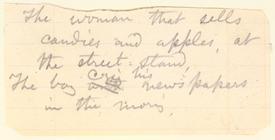 The woman that sells
candies and apples, at
the street-stand,
The boy cries his newspapers
in the morn,